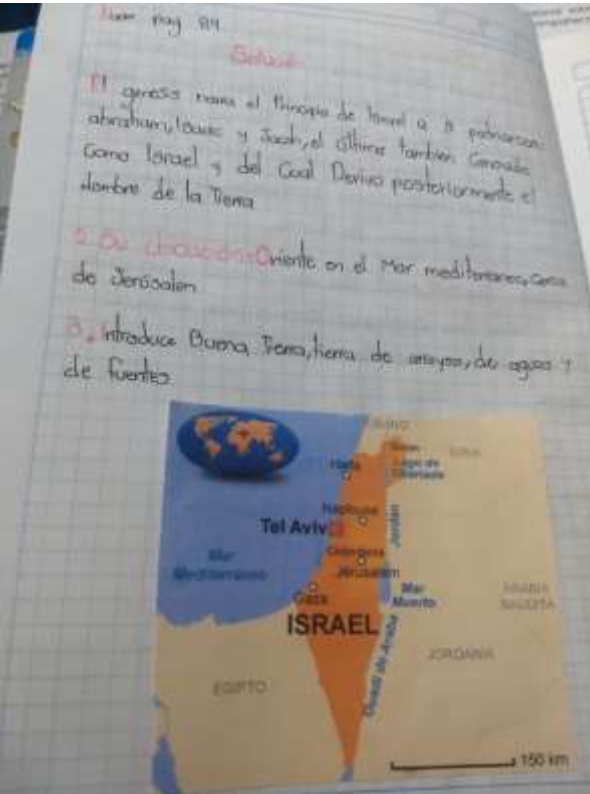 pag 84
Solución
El genesis narra el Principio de Israel a los patriarcas
abraham, Isaac y Jacob, el último tambien Conocido
Como Israel y del Cual Derivo posteriormente el
Nombre de la Tierra
2. Su Ubicación: Oriente en el Mar mediterraneo, cerca
de Jerúsalen
3. Introduce Buena Tierra, tierra de arroyos, de aguas y
de fuentes
LÍBANO
SIRIA
Haifa
Lago de
Tiberíade
Naplouse
Tel Aviv
Jordán
Cisjordania
Jérusalem
Mar
Mediterráneo
Gaza
Mar
Muerto
ARABIA
SAUDITA
ISRAEL
JORDANIA
Ouadi de Araba
EGIPTO
150 km